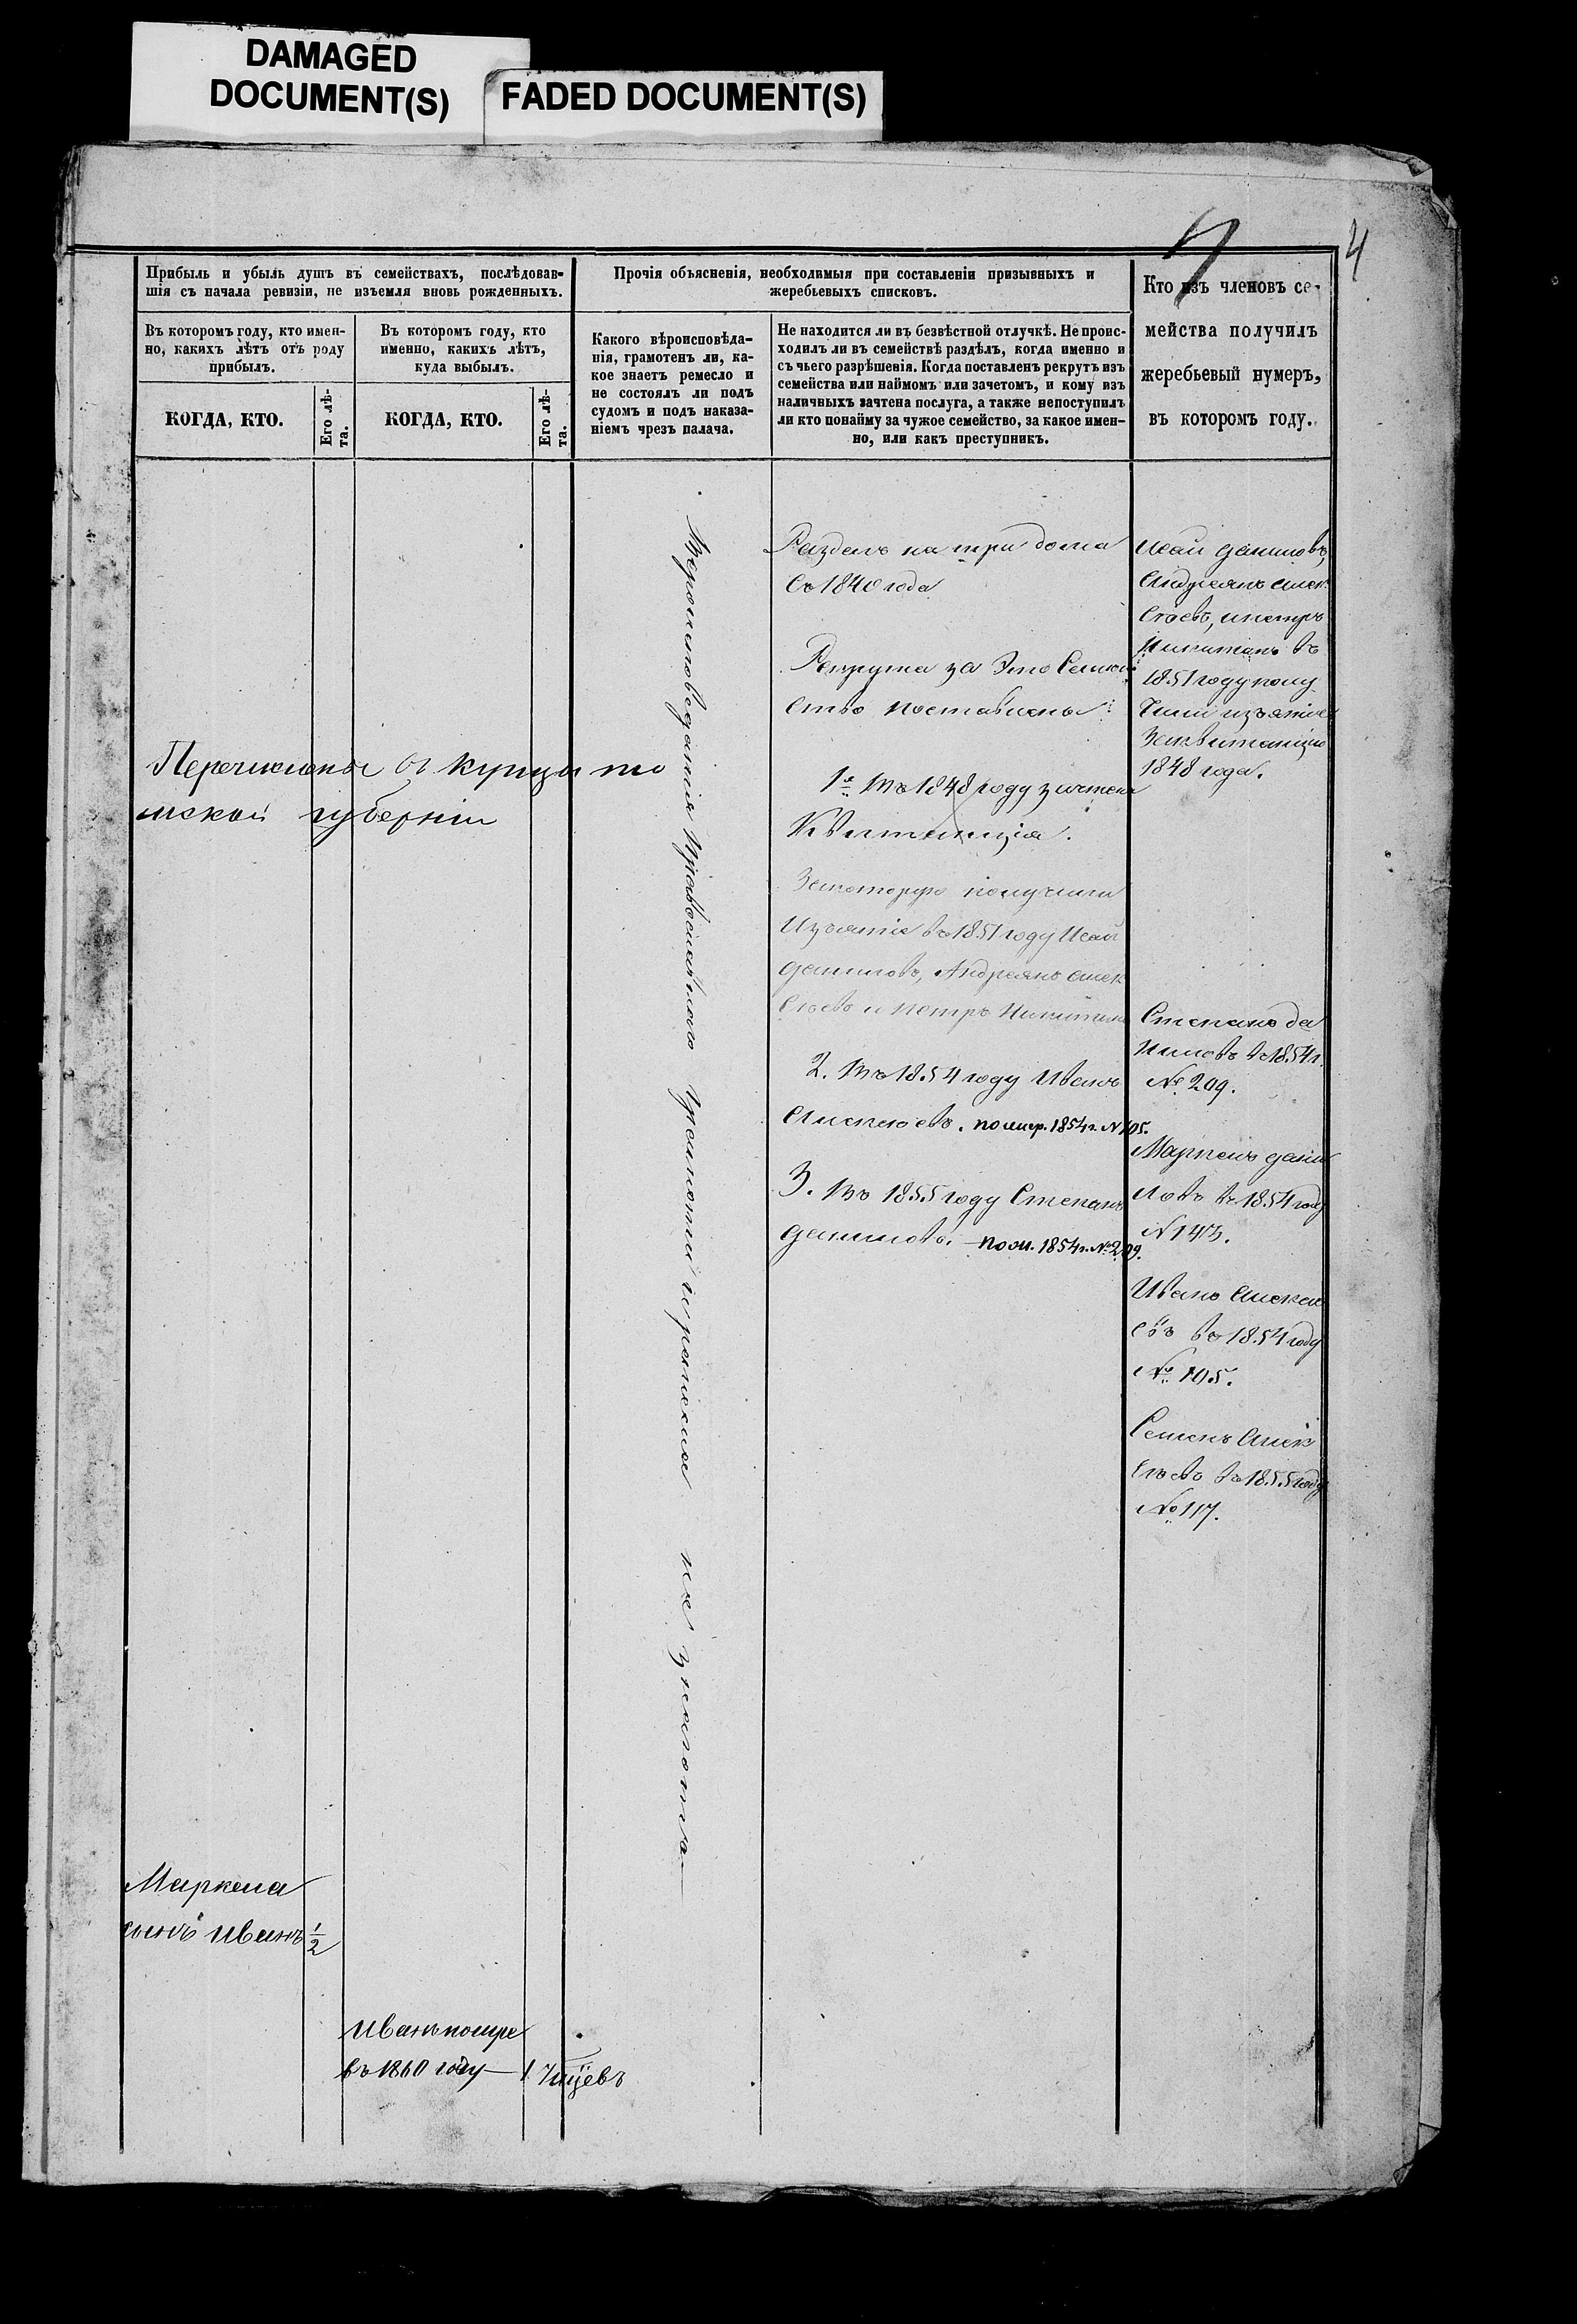 DAMAGED
DOCUMENT(S)
FADED DOCUMENT(S)
4
Прибыль и убыль душъ въ семействахъ, послѣдовав-
шія съ начала ревизіи, не изъемля вновь рожденныхъ.
Въ которомъ году, кто имен-
но, какихъ лѣтъ отъ роду
прибылъ.
Въ которомъ году, кто
именно, какихъ лѣтъ,
куда выбылъ.
КОГДА, КТО.
Его лѣ-
та.
КОГДА, КТО.
Его лѣ-
та.
Прочія объясненія, необходимыя при составленіи призывныхъ и
жеребьевыхъ списковъ.
Какого вѣроисповѣда-
нія, грамотенъ ли, ка-
кое знаетъ ремесло и
не состоялъ ли подъ
судомъ и подъ наказа-
ніемъ чрезъ палача.
Не находится ли въ безвѣстной отлучкѣ. Не происс-
ходилъ ли въ семействѣ раздѣлъ, когда именно и
съ чьего разрѣшенія. Когда поставленъ рекрутъ изъ
семейства или наймомъ или зачетомъ, и кому изъ
наличныхъ зачтена послуга, а также непоступилъ
ли кто понайму за чужое семейство, за какое имен-
но, или какъ преступникъ.
Кто изъ членовъ се-
мейства получилъ
жеребьевый нумеръ,
въ которомъ году.
Перечислены
губерніи
Вероисповеданія Православнаго грамоты и ремесла не знаютъ
Разделъ на три дома
Съ 1840 года
Рекрута за Это Семей
Ство поставлены:
1е Въ 1848 году зачтена
Квитанція.
Закоторую получили
Изъятіе въ 1851 году Исай
Даниловъ, Андреянъ Алек
сѣевъ и Петръ Никитинъ
2. Въ 1854 году Иванъ
Алексеевъ. по жер. 1854 г. N 105.
3. Въ 1855 году Степанъ
Даниловъ. по ж. 1854 г. № 209.
Исай Даниловъ,
Андреянъ Алек
сѣевъ, и петръ
Никитинъ въ
1851 году полу
чили изъятіе
За квитанцію
1848 года.
Степанъ Да
ниловъ въ 1854 г.
№ 209.
Маркелъ Дани
ловъ въ 1854 году
N 143.
Иванъ Алексе
евъ въ 1854 году
№ 105.
Семенъ Алек
сѣевъ въ 1855 году
№ 117.
Маркела
сынъ Иванъ 1/2
Иванъ помре
въ 1860 году — 1